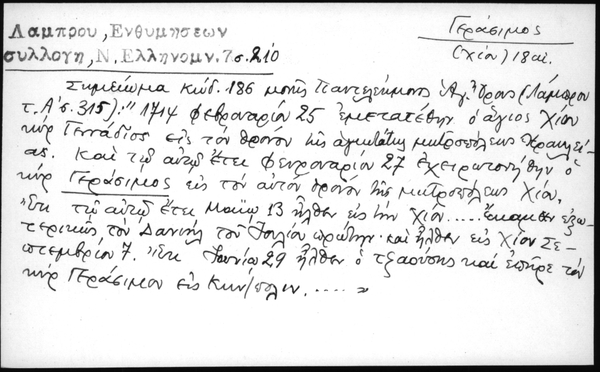 Λαμπρου, Ενθυμησεων
συλλογη, Ν. Ελληνομν. 7 σ. 210
Γεράσιμος
(Χίου) 18 αἰ.
Σημείωμα κώδ. 186 μονῆς Παντελεήμονος Ἁγ. Ὄρους (Λάμπρου
τ. Α΄ σ. 315): "1714 φεβρουαρίου 25 ἐμετατέθην ὁ ἅγιος Χίου
κύρ Γεννάδιος εἰς τόν θρόνον τῆς ἁγιωτάτης μητροπόλεως Ἡρακλεί-
ας. Καί τῷ αὐτῷ ἔτει φευρουαρίου 27 ἐχειροτονήθην ὁ
κύρ Γεράσιμος εἰς τόν αὐτόν θρόνον τῆς μητροπόλεως Χίου.
Ἔτι τῷ αὐτῷ ἔτει Μαΐῳ 13 ἦλθεν εἰς τήν Χίον ..... Ἔκαμθεν ἐξω-
τερικῶς τόν Δανιήλ τοῦ Ἰουλίου πρώτην. καί ἦλθεν εἰς Χίον Σε-
πτεμβρίου 7. Ἔτι Ἰουνίῳ 29 ἦλθεν ὁ τζαούσης καί ἐπῆρε τόν
κύρ Γεράσιμον εἰς Κων/πολιν. ..... "